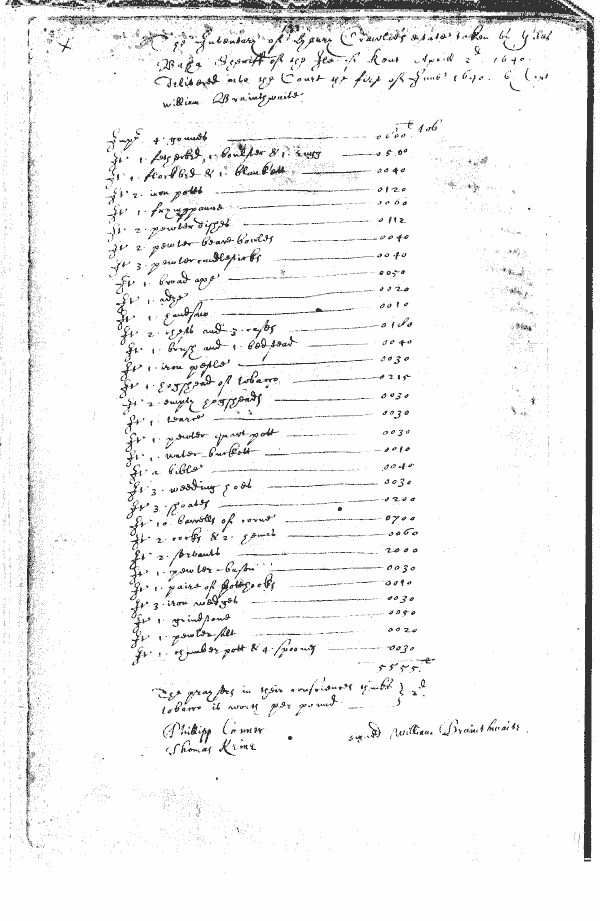 The Inventory of Henry Crawlies estate taken by
of the Ile of Kent Aprill 2d 1640.
delivered into the Court the first of June 1640. by
William Braithwaite
Impr 4 gownes 0600 lt 106
It 1. fetherbed, 1 boulster & 1 rugg 0500
It 1 flockbed & 1. blankett 0040
It 2. iron potts 0120
It 1. fryingpanne 0060
It 2. pewter dishes 0112
It 2. pewter beare bowles 0040
It 3. pewter candlesticks 0040
It 1. broad axe 0050
It 1. adze 0020
It 1. handsaw 0010
It 2. chests and 3. casks 0180
It 1. brush and 1 bedstead 0040
It 1. iron pestle 0030
It 1. hogshead of tobacco 0215
It 2. empty hogsheads 0030
It 1. tearce 0030
It 1. pewter quart pott 0030
It 1. water buckett 0010
It a bible 0040
It 3. weeding hoes 0030
It 3. shoates 0200
It 10. barrells of corne 0700
It 2. cocks & 2. henns 0060
It 2. servants 2000
It 1. pewter bason 0030
It 1. paire of pothooks 0010
It 3. iron wedges 0030
It 1. grindstone 0050
It 1. pewter salt 0020
It 1. chamber pott & 4. spoones 0030
5555. lt
The praysers in their consciences thinke
tobacco is worth per pound } 2d
Phillipp Conner
Thomas Keine signed William Braithwaite